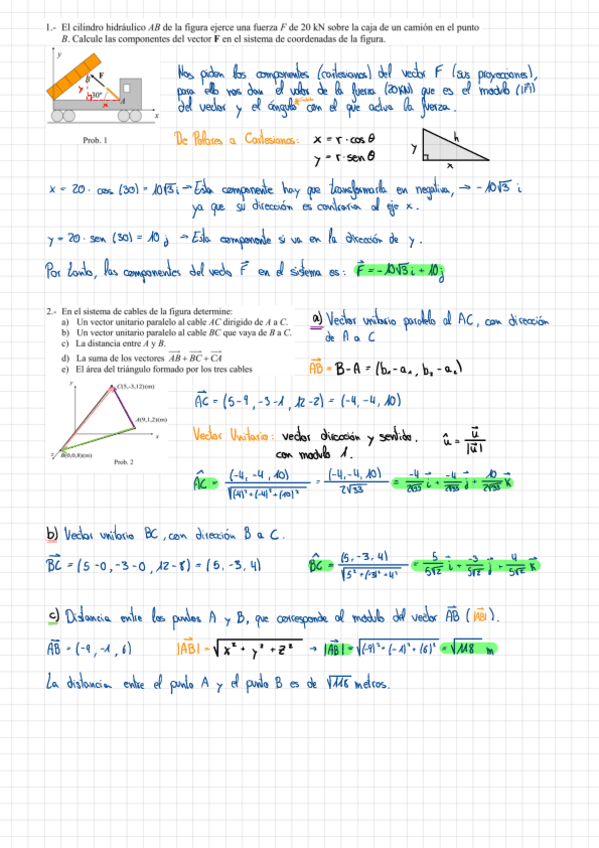 1.- El cilindro hidráulico AB de la figura ejerce una fuerza F de 20 kN sobre la caja de un camión en el punto
B. Calcule las componentes del vector F en el sistema de coordenadas de la figura.
y
B
F
30°
A
x
Prob. 1
Nos piden las componentes (cartesianas) del vector F (sus proyecciones),
para ello nos dan el valor de la fuerza (20kN) que es el modulo (|F|)
del vector y el ángulo con el que actua la fuerza.
De Polares a Cartesianas: x = r · cos θ
y = r · sen θ
y
h
x
x = 20 · cos (30) = 10√3 i → Esta componente hay que transformarla en negativa, → -10√3 i
ya que su dirección es contraria al eje x.
y = 20 · sen (30) = 10 j → Esta componente si va en la dirección de y.
Por tanto, las componentes del vecto F en el sistema es: F = -10√3 i + 10 j
2.- En el sistema de cables de la figura determine:
a) Un vector unitario paralelo al cable AC dirigido de A a C.
b) Un vector unitario paralelo al cable BC que vaya de B a C.
c) La distancia entre A y B.
d) La suma de los vectores AB + BC + CA
e) El área del triángulo formado por los tres cables
y
C(5,-3,12)(m)
A(9,1,2)(m)
x
z
B(0,0,8)(m)
Prob. 2
a) Vector unitario paralelo al AC, con dirección
de A a C
AB = B - A =
AC = (5-9, -3-1, 12-2) = (-4, -4, 10)
Vector Unitario: vector dirección y sentido. û = u / |u|
con modulo 1.
AC = (-4, -4, 10) / √((4)² + (-4)² + (10)²) = (-4, -4, 10) / 2√33 = -4/2√33 i + -4/2√33 j + 10/2√33 k
b) Vector unitario BC, con dirección B a C.
BC = (5-0, -3-0, 12-8) = (5, -3, 4)
BC = (5, -3, 4) / √(5² + (-3)² + 4²) = 5/5√2 i + -3/5√2 j + 4/5√2 k
c) Distancia entre los puntos A y B, que corresponde al modulo del vector AB (|AB|).
AB = (-9, -1, 6) |AB| = √(x² + y² + z²) → |AB| = √((-9)² + (-1)² + (6)²) = √118 m
La distancia entre el punto A y el punto B es de √118 metros.